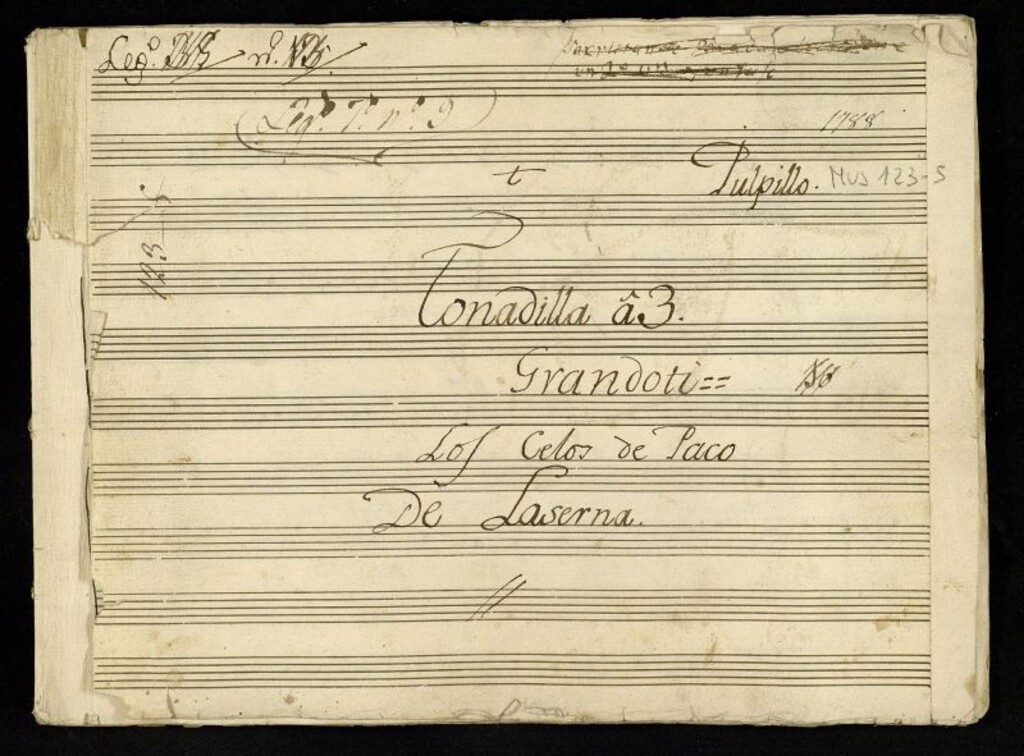 Leg.º nº.
(Leg.º 7.º n.º 9)
1788
t
Pulpillo. MUS 123-5
123-5
Tonadilla â 3.
Grandoti==
Los Celos de Paco
De Laserna.